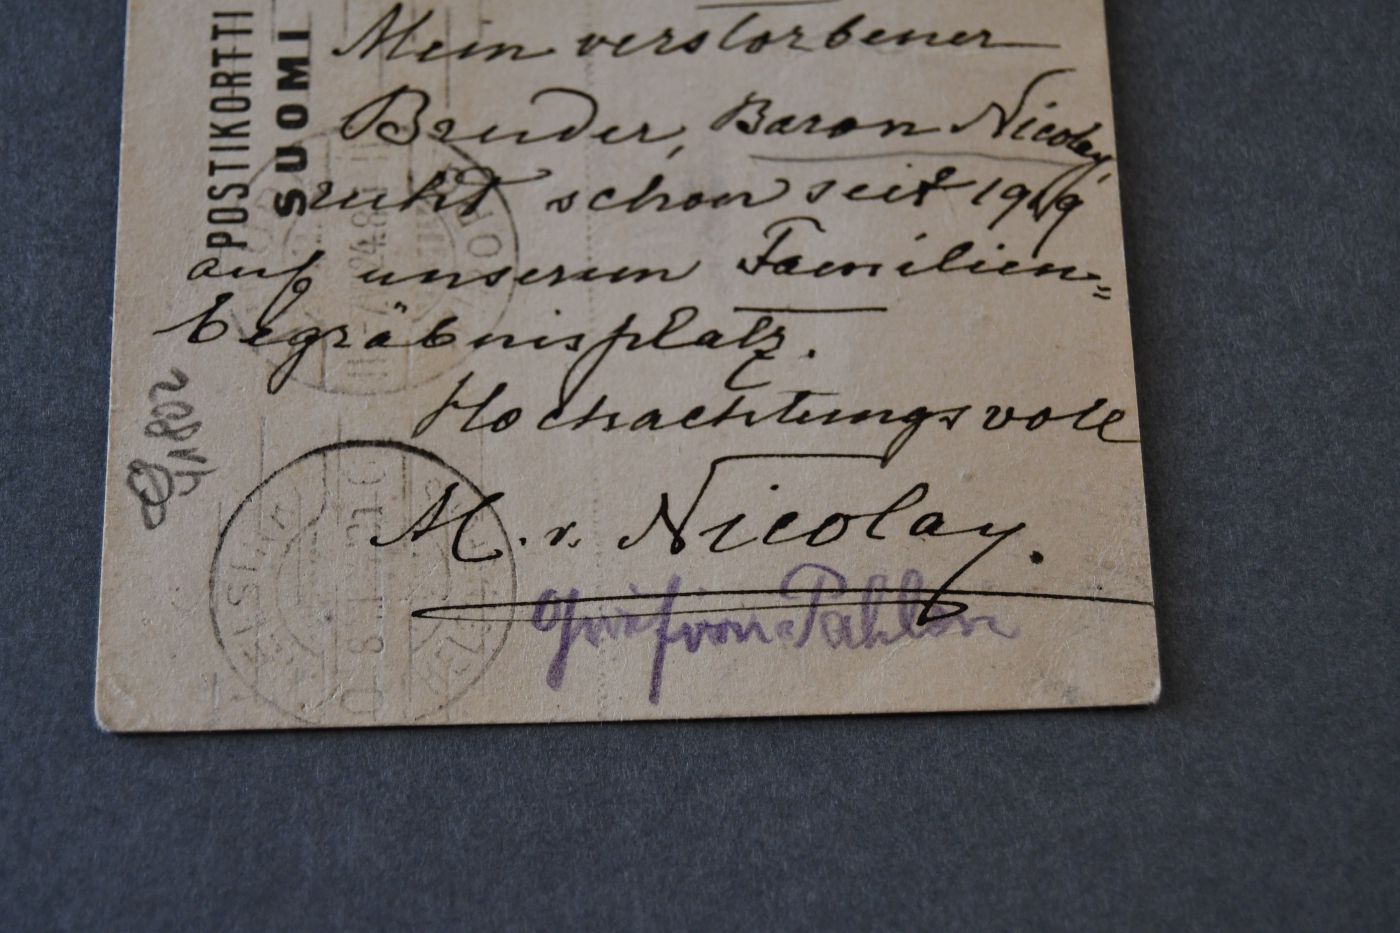 POSTIKORTTI
SUOMI
Mein verstorbener
Bruder, Baron Nicolay,
ruht schon seit 1919
auf unserem Familien=
begräbnisplatz.
Hochachtungsvoll
M. v. Nicolay.
Graf von Pahlen